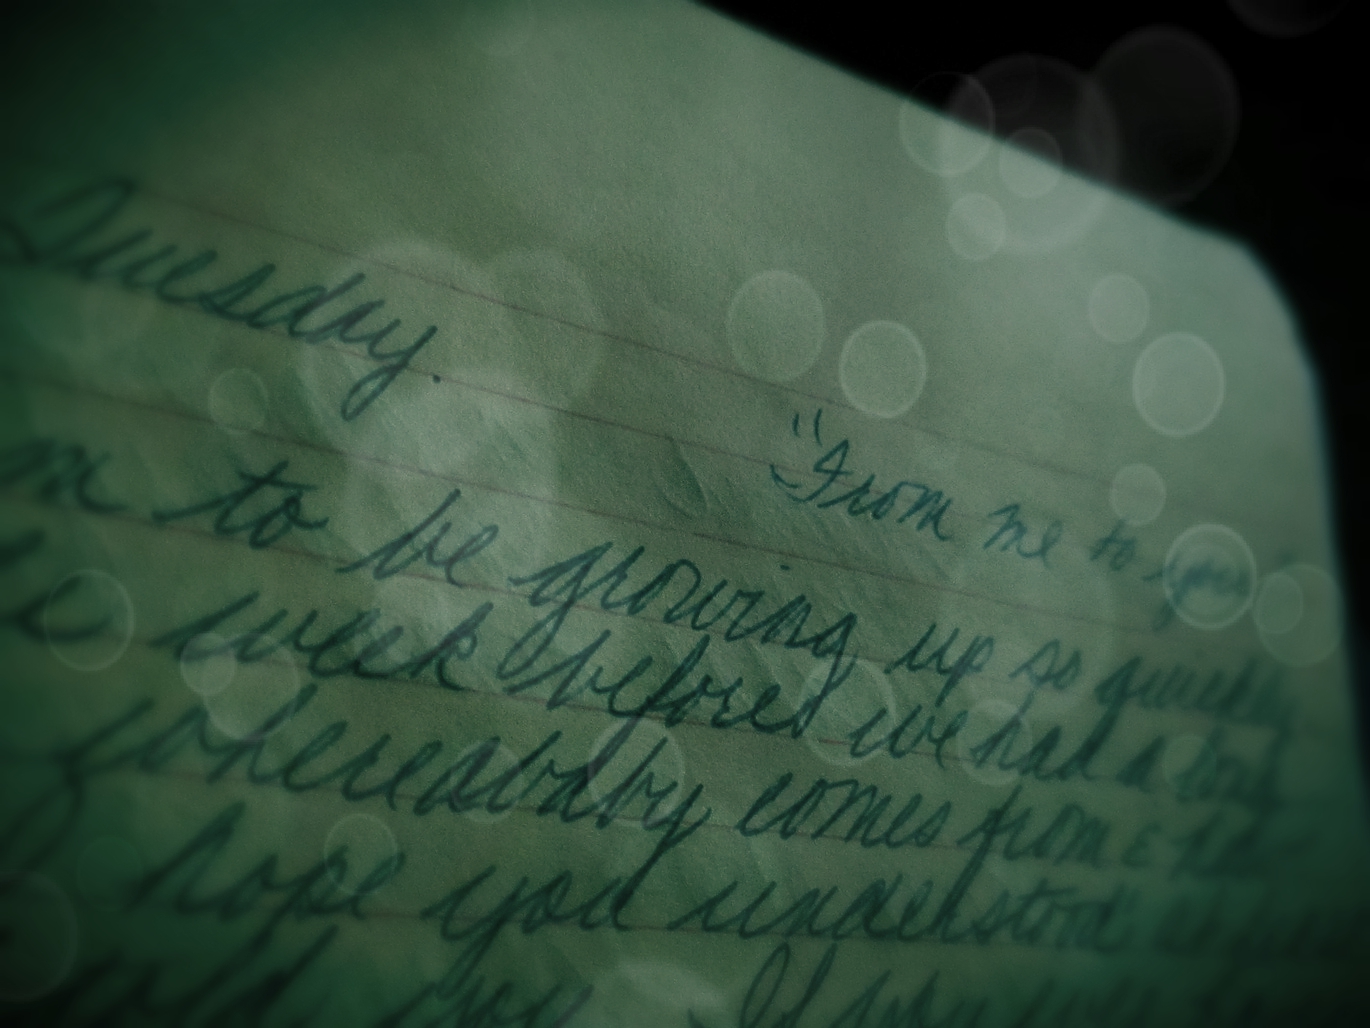 Tuesday.
"From me to you"
to be growing up so quickly
week before we had a long
where a baby comes from &
hope you understood
told you. If you